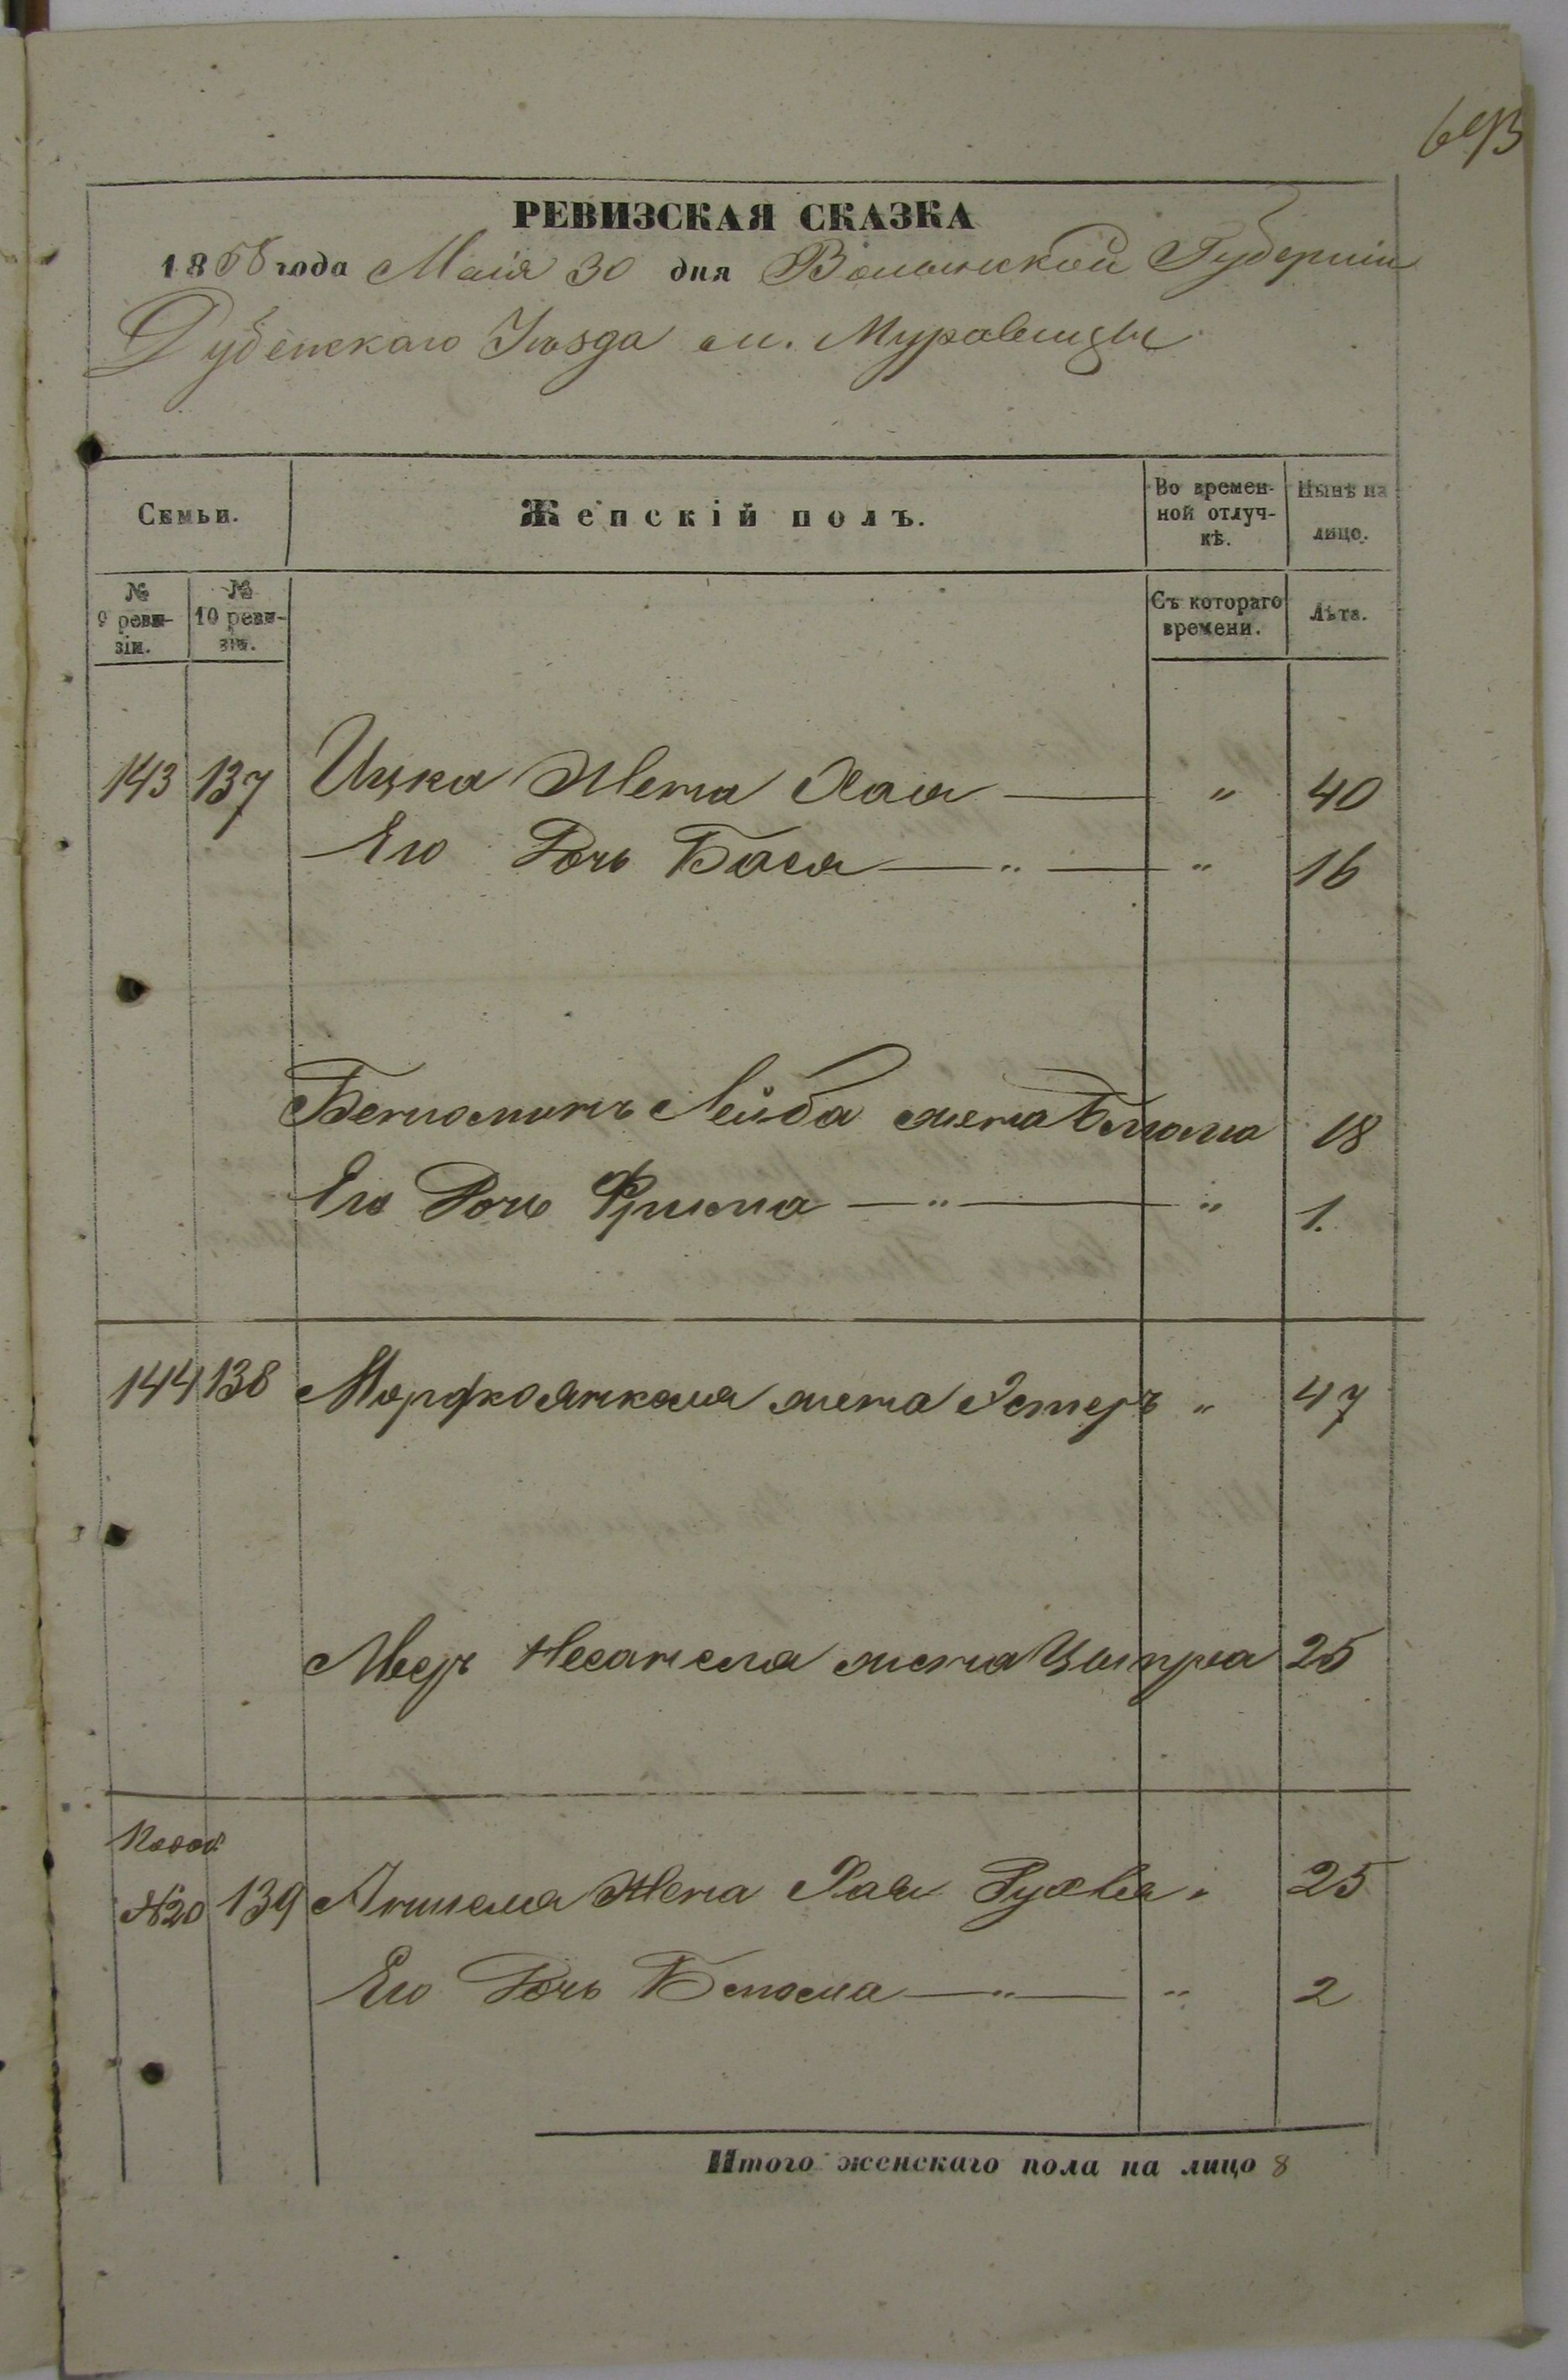 693
РЕВИЗСКАЯ СКАЗКА
1858 года Маія 30 дня Волынской Губерніи
Дубенскаго Уѣзда м. Муравицы
Семьи. Женскій полъ. Во времен-ной отлуч-кѣ. Нынѣ на лицо.
№ 9 реви-зіи. № 10 реви-зіи. Съ котораго времени. Лѣта.
143 137 Ицка Жена Хая — " 40
Его Дочь Бася — " — " 16
Беньоминъ Лейба жена Блюма 18
Его Дочь Фрима — " — " 1.
144 138 Мордко Янкеля жена Эстеръ " 47
Меер Несанеля жена Ципра 25
№20 139 Аншеля Жена Хая Рухля " 25
Его Дочь Блюма — " — " 2
Итого женскаго пола на лицо 8